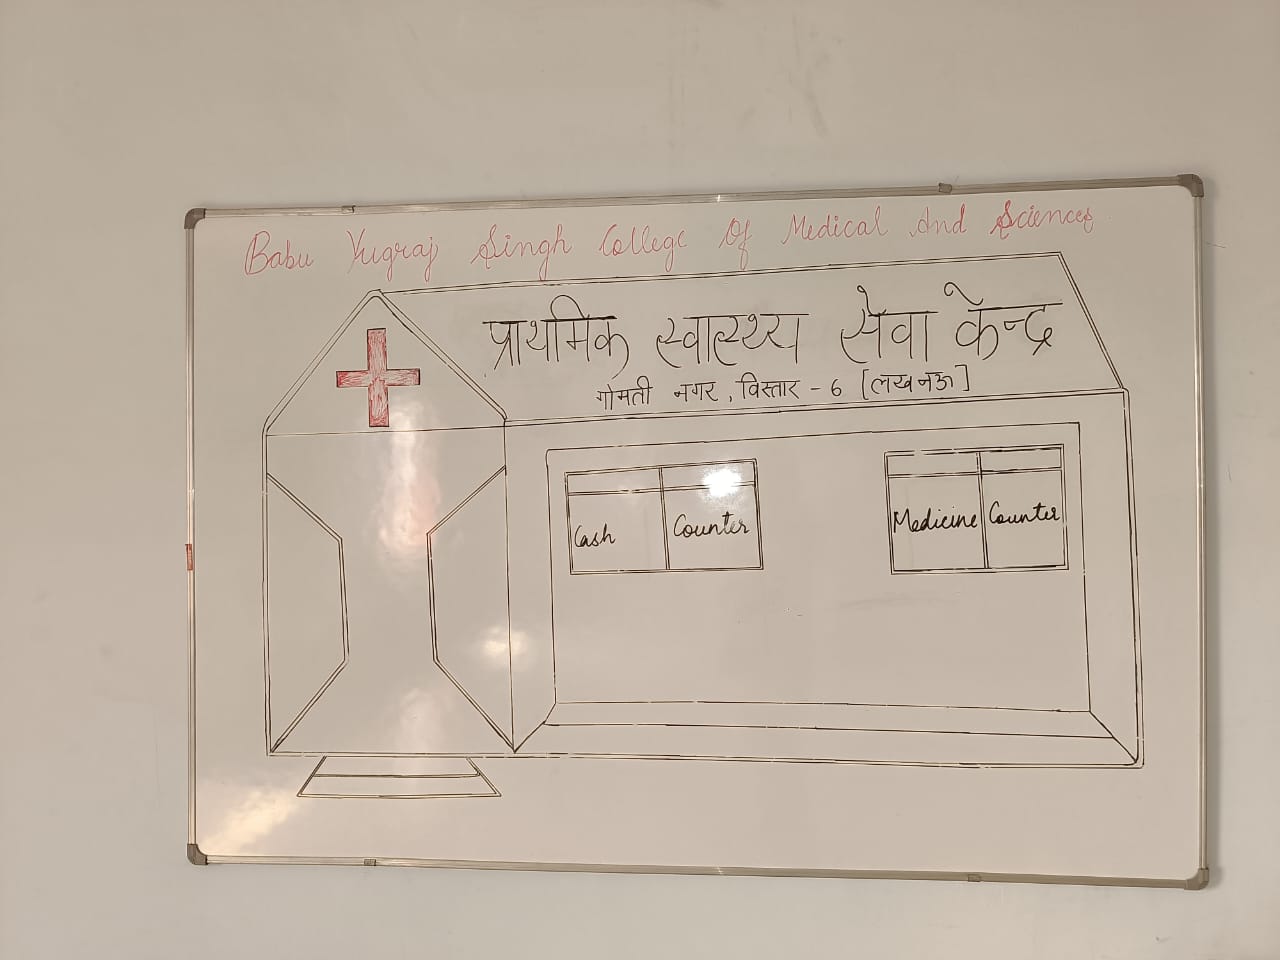 Babu Yugraj Singh College Of Medical And Sciences
प्राथमिक स्वास्थ्य सेवा केन्द्र
गोमती नगर, विस्तार - 6 [लखनऊ]
Cash Counter
Medicine Counter